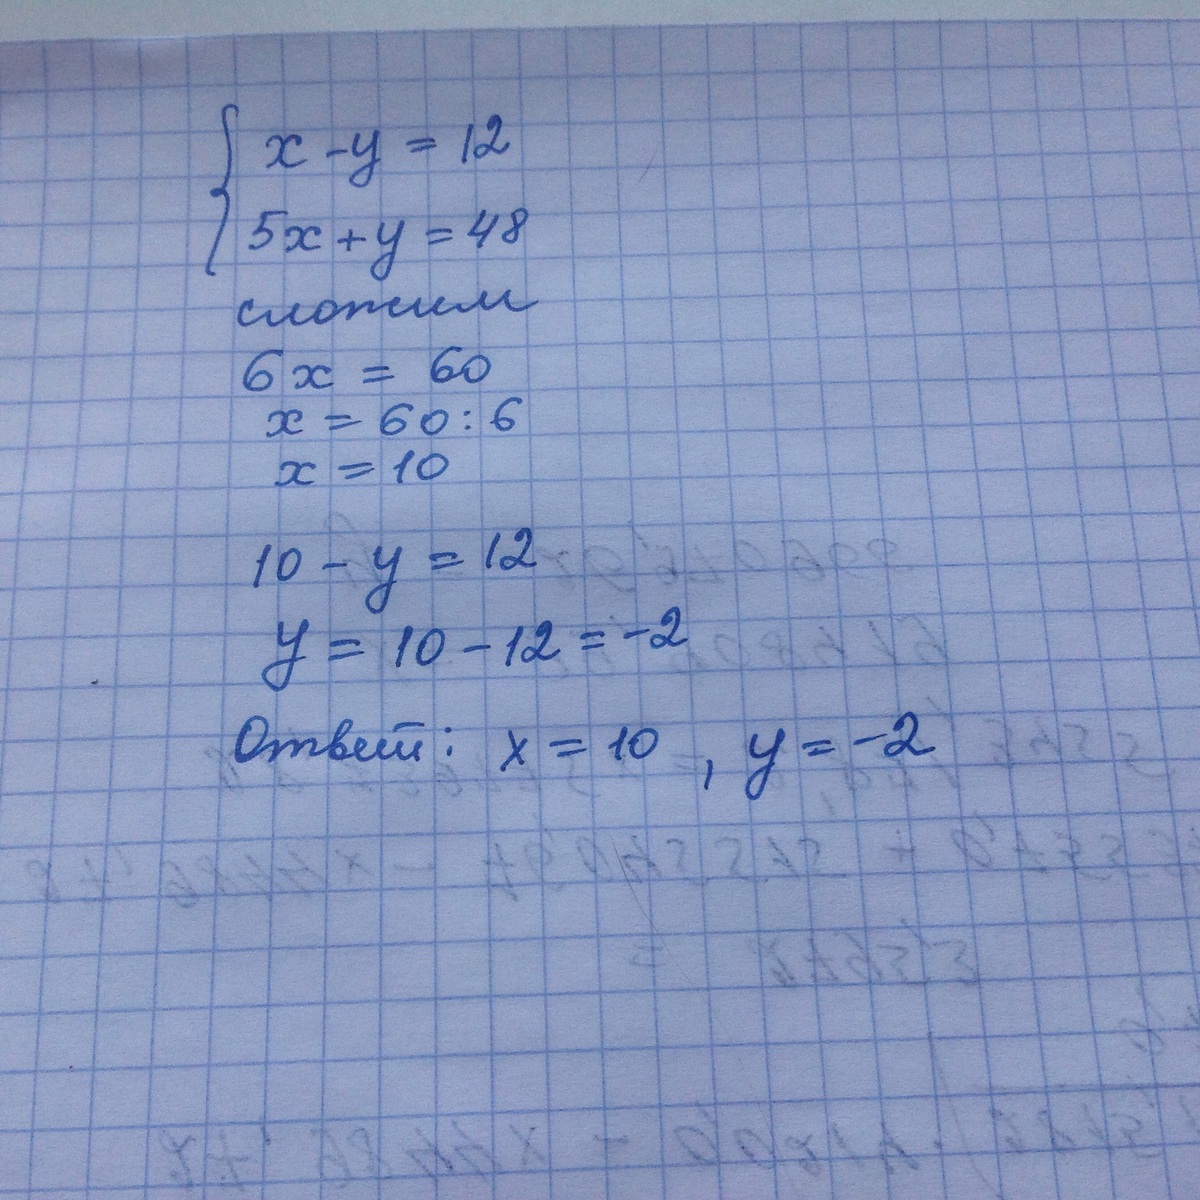 x - y = 12
5x + y = 48
сложим
6x = 60
x = 60 : 6
x = 10
10 - y = 12
y = 10 - 12 = -2
Ответ: x = 10, y = -2